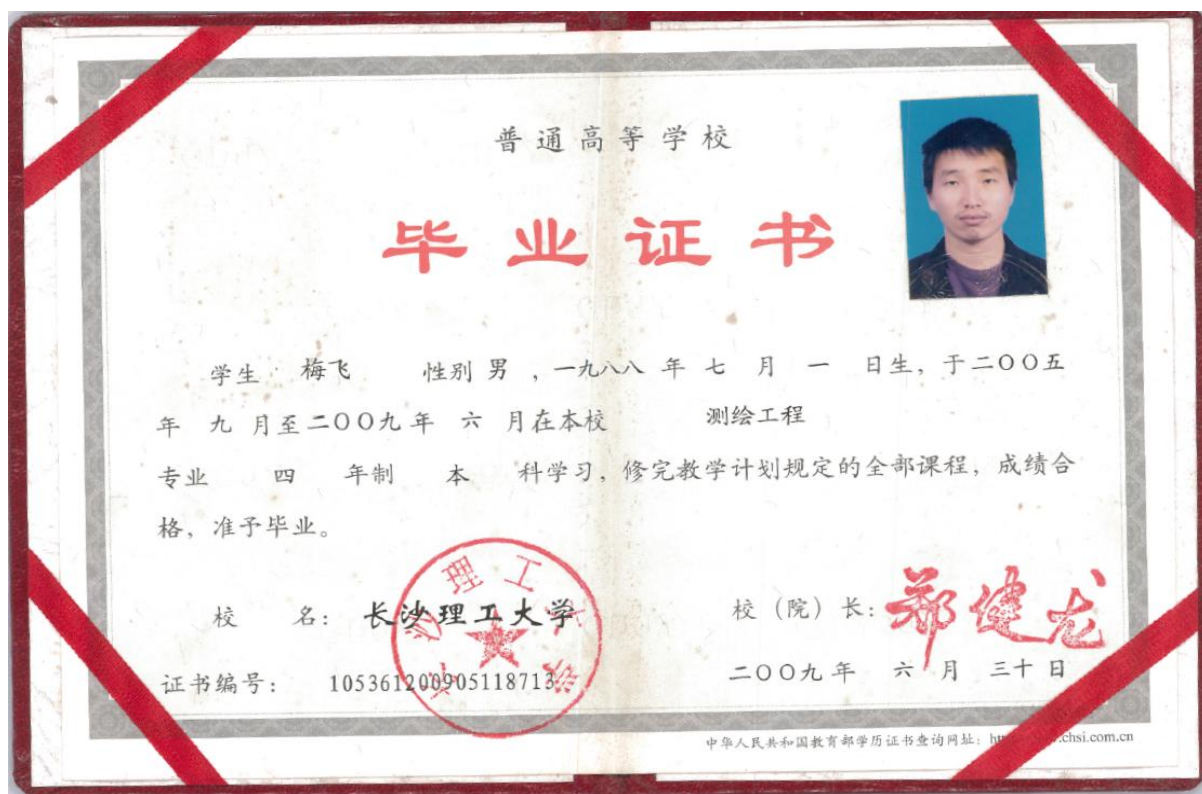 普通高等学校
毕业证书
学生 梅飞 性别 男 ，一九八八 年 七 月 一 日生，于二〇〇五
年 九 月至二〇〇九年 六 月在本校 测绘工程
专业 四 年制 本 科学习，修完教学计划规定的全部课程，成绩合
格，准予毕业。
校 名： 长沙理工大学
校（院）长： 郑健龙
长沙理工大学
证书编号： 105361200905118713
二〇〇九年 六 月 三十 日
中华人民共和国教育部学历证书查询网址： chsi.com.cn